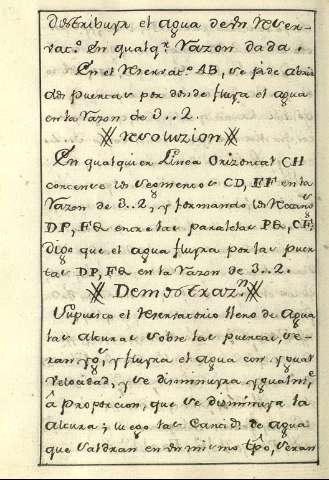 distribuya el agua de Un Reser-
vat.º En qualq.r Razon dada.
En el Reservat.º AB, se ha de abrir
dos puertas por donde fluya el agua
en la razon de 3..2.
Resoluzion
En qualquier Linea Orizontal CH
cortense los Segmentos CD, FF en la
Razon de 3..2, y formando los
DP, FG entre las paralelas PG, CF,
digo que el agua fluyra por las puer-
tas DP, FG en la Razon de 3..2.
Demostraz.n
Supuesto el Reservatorio lleno de Agua
las alturas sobre las puertas, se-
ran yg.s, y fluyra el agua con ygual
Velocidad, y se disminuyra ygualm.te
â proporcion, que se disminuya la
altura; luego las Cantid.s de agua
que saldran en Un mismo tpõ, seran